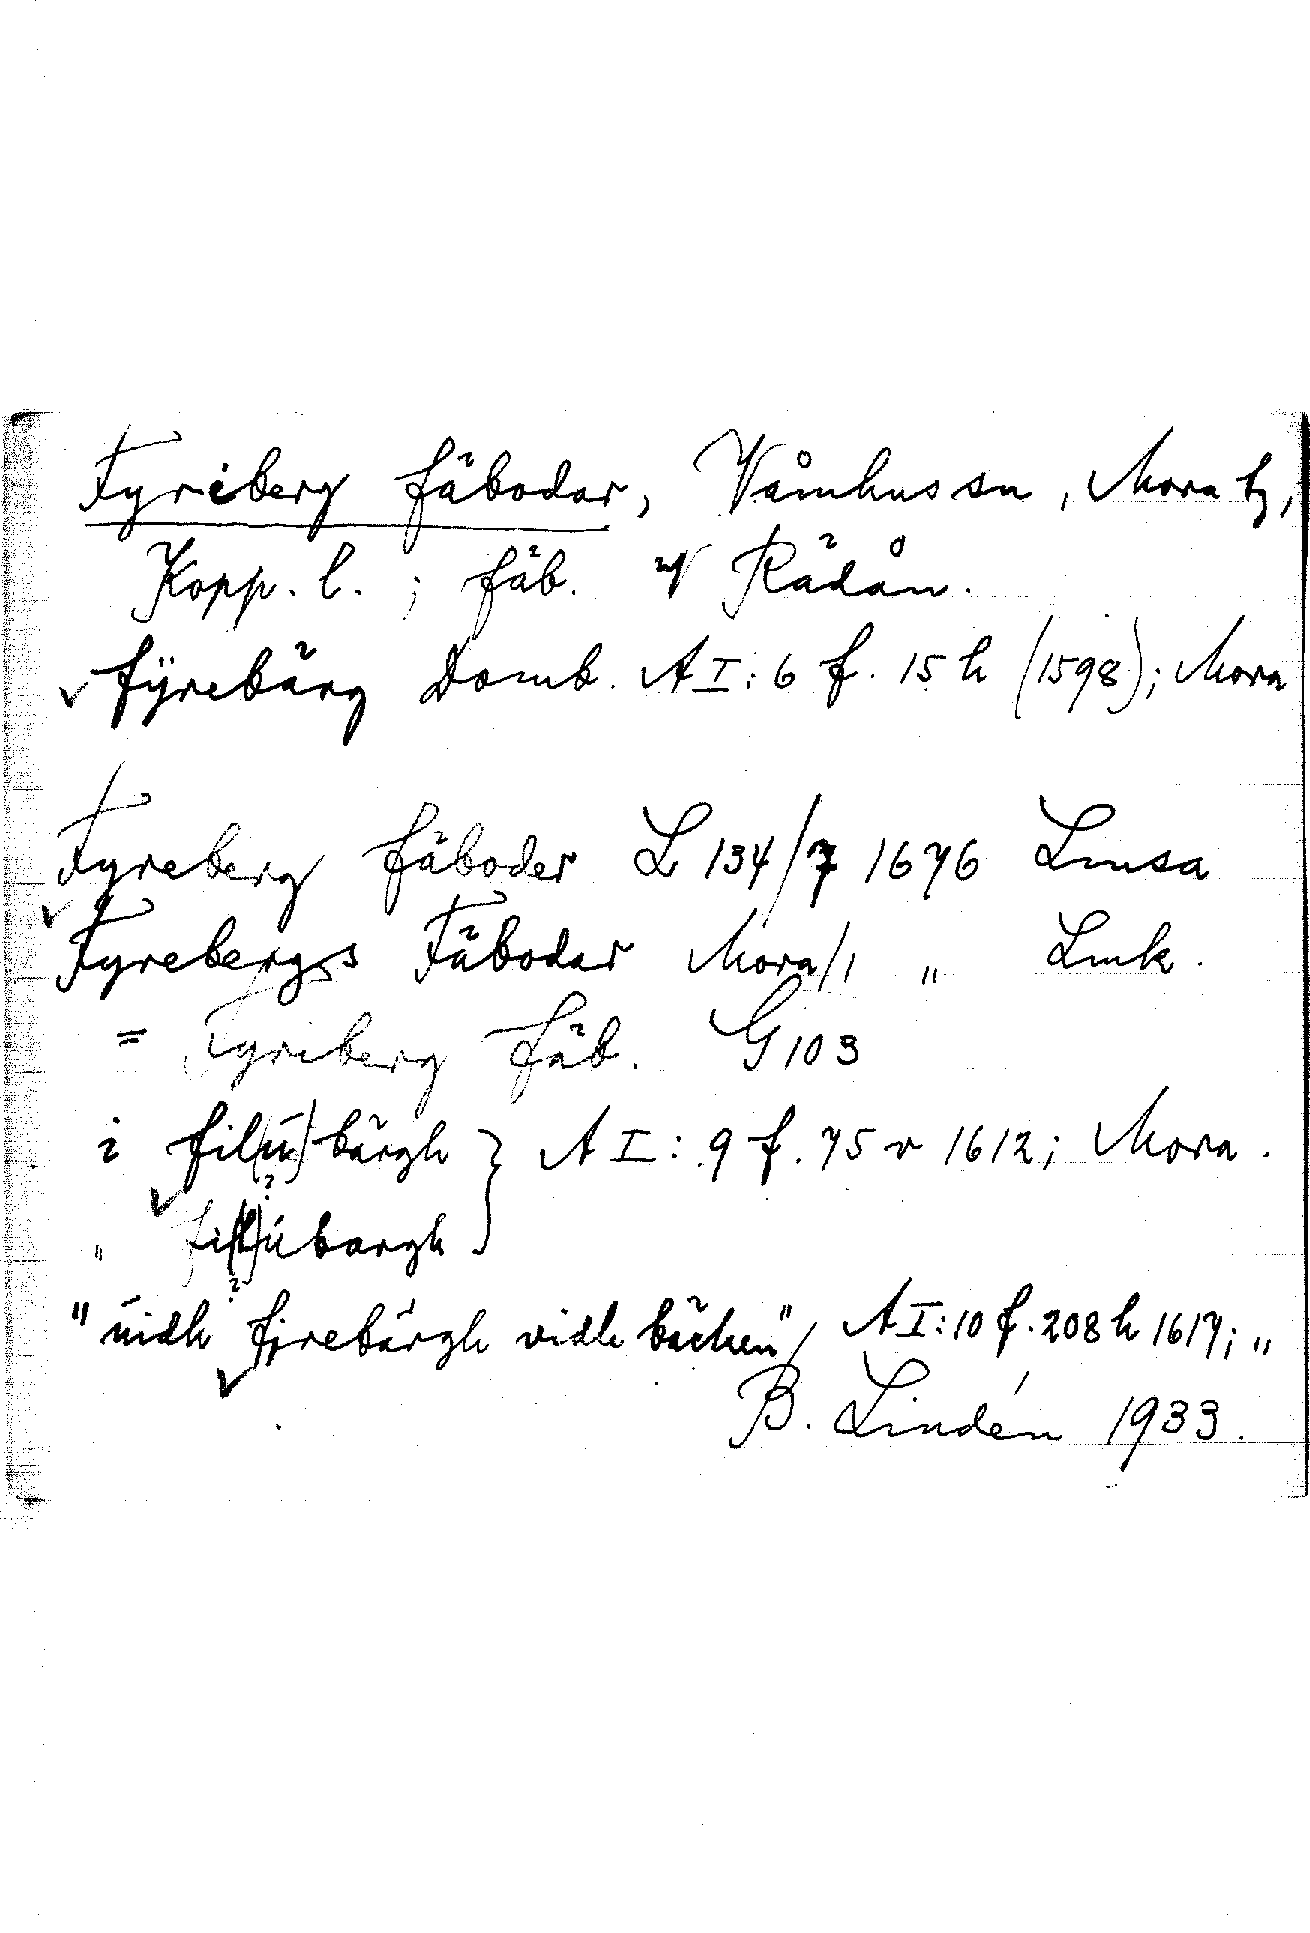 Fyriberg fäbodar, Våmhus sn, Mora tg,
Kopp. l.; fäb. v Rädån.
fÿrebärg Domb. A I: 6 f. 15 h (1598); Mora
Fyreberg fäboder L 134/7 1676 Lmsa
Fyrebergs Fäbodar Mora/1 " Lmk.
= Fyriberg fäb. G 103
i fil(ú)bärgh } A I: 9 f. 75 v 1612; Mora.
?
" fi(l)úbargh
?
"úidh fjrebärgh vidh bäcken", A I: 10 f. 208 h 1617; "
B. Lindén 1933.